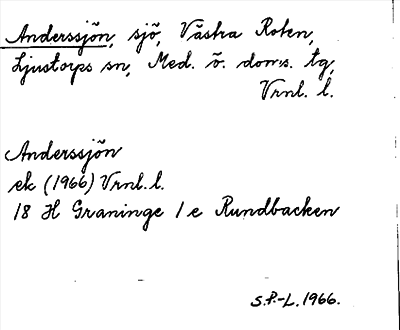 Anderssjön, sjö, Västra Roten,
Ljustorps sn, Med. ö. doms. tg,
Vrnl. l.
Anderssjön
ek (1966) Vrnl. l.
18 H Graninge 1 e Rundbacken
S.P.-L. 1966.